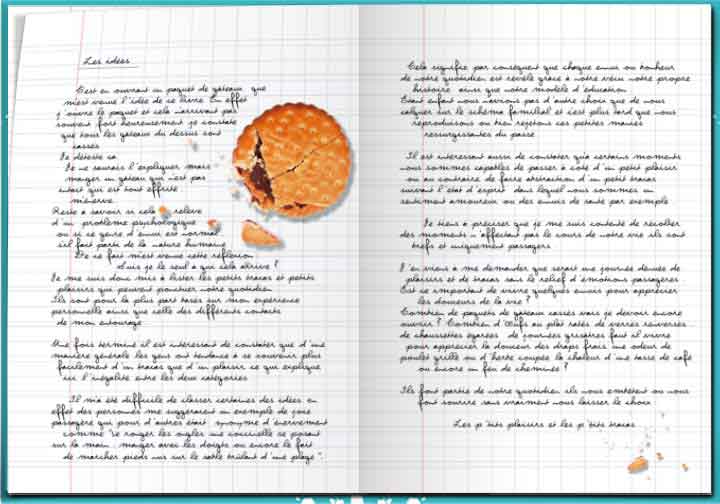 Les idées
C'est en ouvrant un paquet de gateaux que
m'est venue l'idée de ce livre. En effet
j'ouvre le paquet et cela n'arrivant pas
souvent fort heureusement je constate
que tous les gateaux du dessus sont
cassés
Je déteste ca
Je ne saurais l'expliquer mais
manger un gateau qui n'est pas
intact qui est tout effrité
m'énerve
Reste à savoir si cela relève
d'un problème psychologique
ou si ce genre d'ennui est normal
s'il fait partie de la nature humaine
De ce fait m'est venue cette réflexion
Suis je le seul a qui cela arrive ?
Je me suis donc mis à lister les petits tracas et petits
plaisirs qui peuvent ponctuer notre quotidien
Ils sont pour la plus part basés sur mon expérience
personnelle ainsi que celle des différents contacts
de mon entourage
Une fois terminé il est intéressant de constater que d'une
manière générale les gens ont tendance à se souvenir plus
facilement d'un tracas que d'un plaisir ce qui explique
sur l'inégalité entre les deux catégories
Il m'a été difficile de classer certaines des idées en
effet des personnes me suggéraient un exemple de joie
passagère qui pour d'autres était synonyme d'énervement
comme "se ronger les ongles une coccinelle se posant
sur la main manger avec les doigts ou encore le fait
de marcher pieds nus sur le sable brûlant d'une plage".
Cela signifie par conséquent que chaque ennui ou bonheur
de notre quotidien est révélé grâce à notre vécu notre propre
histoire ainsi que notre modèle d'éducation
Etant enfant nous n'avons pas d'autre choix que de nous
calquer sur le schéma familial et c'est plus tard que nous
reproduisons ou bien rejetons ces petites manies
ressurgissantes du passé
Il est intéressant aussi de constater qu'à certains moments
nous sommes capables de passer à coté d'un petit plaisir
ou au contraire de faire abstraction d'un petit tracas
suivant l'état d'esprit dans lequel nous sommes un
sentiment amoureux ou des ennuis de santé par exemple
Je tiens à préciser que je me suis contenté de récolter
des moments n'affectant pas le cours de notre vie ils sont
brefs et uniquement passagers
J'en viens à me demander que serait une journée dénuée de
plaisirs et de tracas sans le relief d'émotions passagères
Est ce important de vivre quelques ennuis pour apprécier
les douceurs de la vie ?
Combien de paquets de gateaux cassés vais je devoir encore
ouvrir ? Combien d'Œufs au plat ratés de verres renversés
de chaussettes égarées de journées grisâtres faut il vivre
pour apprécier la douceur des draps frais une odeur de
poulet grillé ou d'herbe coupée la chaleur d'une tasse de café
ou encore un feu de cheminée ?
Ils font partie de notre quotidien ils nous embêtent ou nous
font sourire sans vraiment nous laisser le choix
Les p'tits plaisirs et les p'tits tracas